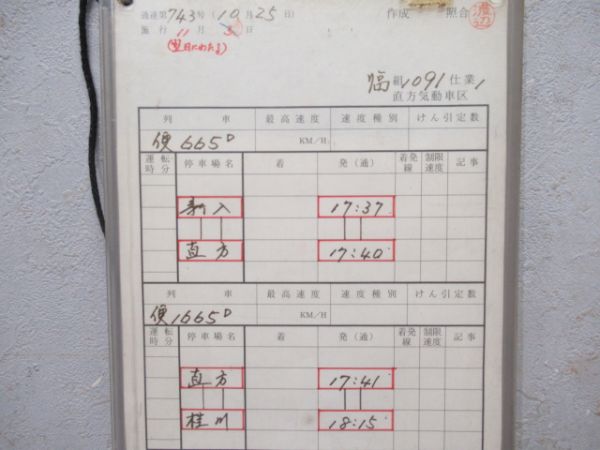 過達第743号(10月25日) 作成 照合 渡辺
施行 11月3日
(翌日にわたる)
福組1091仕業1
直方気動車区
列車 最高速度 速度種別 けん引定数
便665D KM/H
運転時分 停車場名 着 発(通) 着発線 制限速度 記事
新入 17:37
直方 17:40
列車 最高速度 速度種別 けん引定数
便1665D KM/H
運転時分 停車場名 着 発(通) 着発線 制限速度 記事
直方 17:41
桂川 18:15